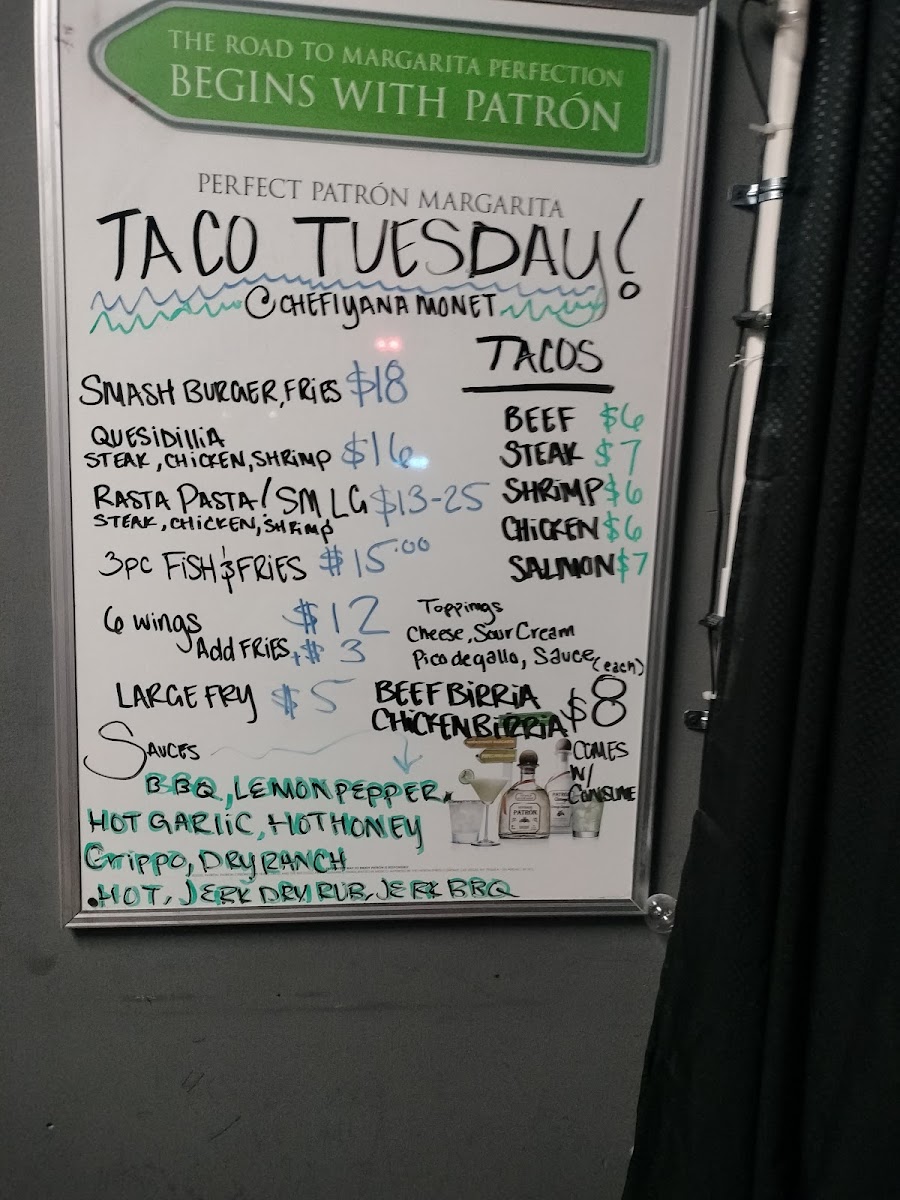 THE ROAD TO MARGARITA PERFECTION
BEGINS WITH PATRÓN
PERFECT PATRÓN MARGARITA
TACO TUESDAY!
@CHEFIYANA MONET
SMASH BURGER, FRIES $18
QUESIDILLIA
STEAK, CHICKEN, SHRIMP $16
RASTA PASTA! SM LG $13-25
STEAK, CHICKEN, SHRIMP
3PC FISH & FRIES $15.00
6 wings $12
Add FRIES, +$ 3
LARGE FRY $5
TACOS
BEEF $6
STEAK $7
SHRIMP $6
CHICKEN $6
SALMON $7
Toppings
Cheese, Sour Cream
Pico de gallo, Sauce (each)
BEEF BIRRIA
CHICKEN BIRRIA $8
COMES
W/
CONSUME
SAUCES
BBQ, LEMON PEPPER,
HOT GARLIC, HOT HONEY
Grippo, DRY RANCH
.HOT, JERK DRY RUB, JERK BBQ
PATRÓN